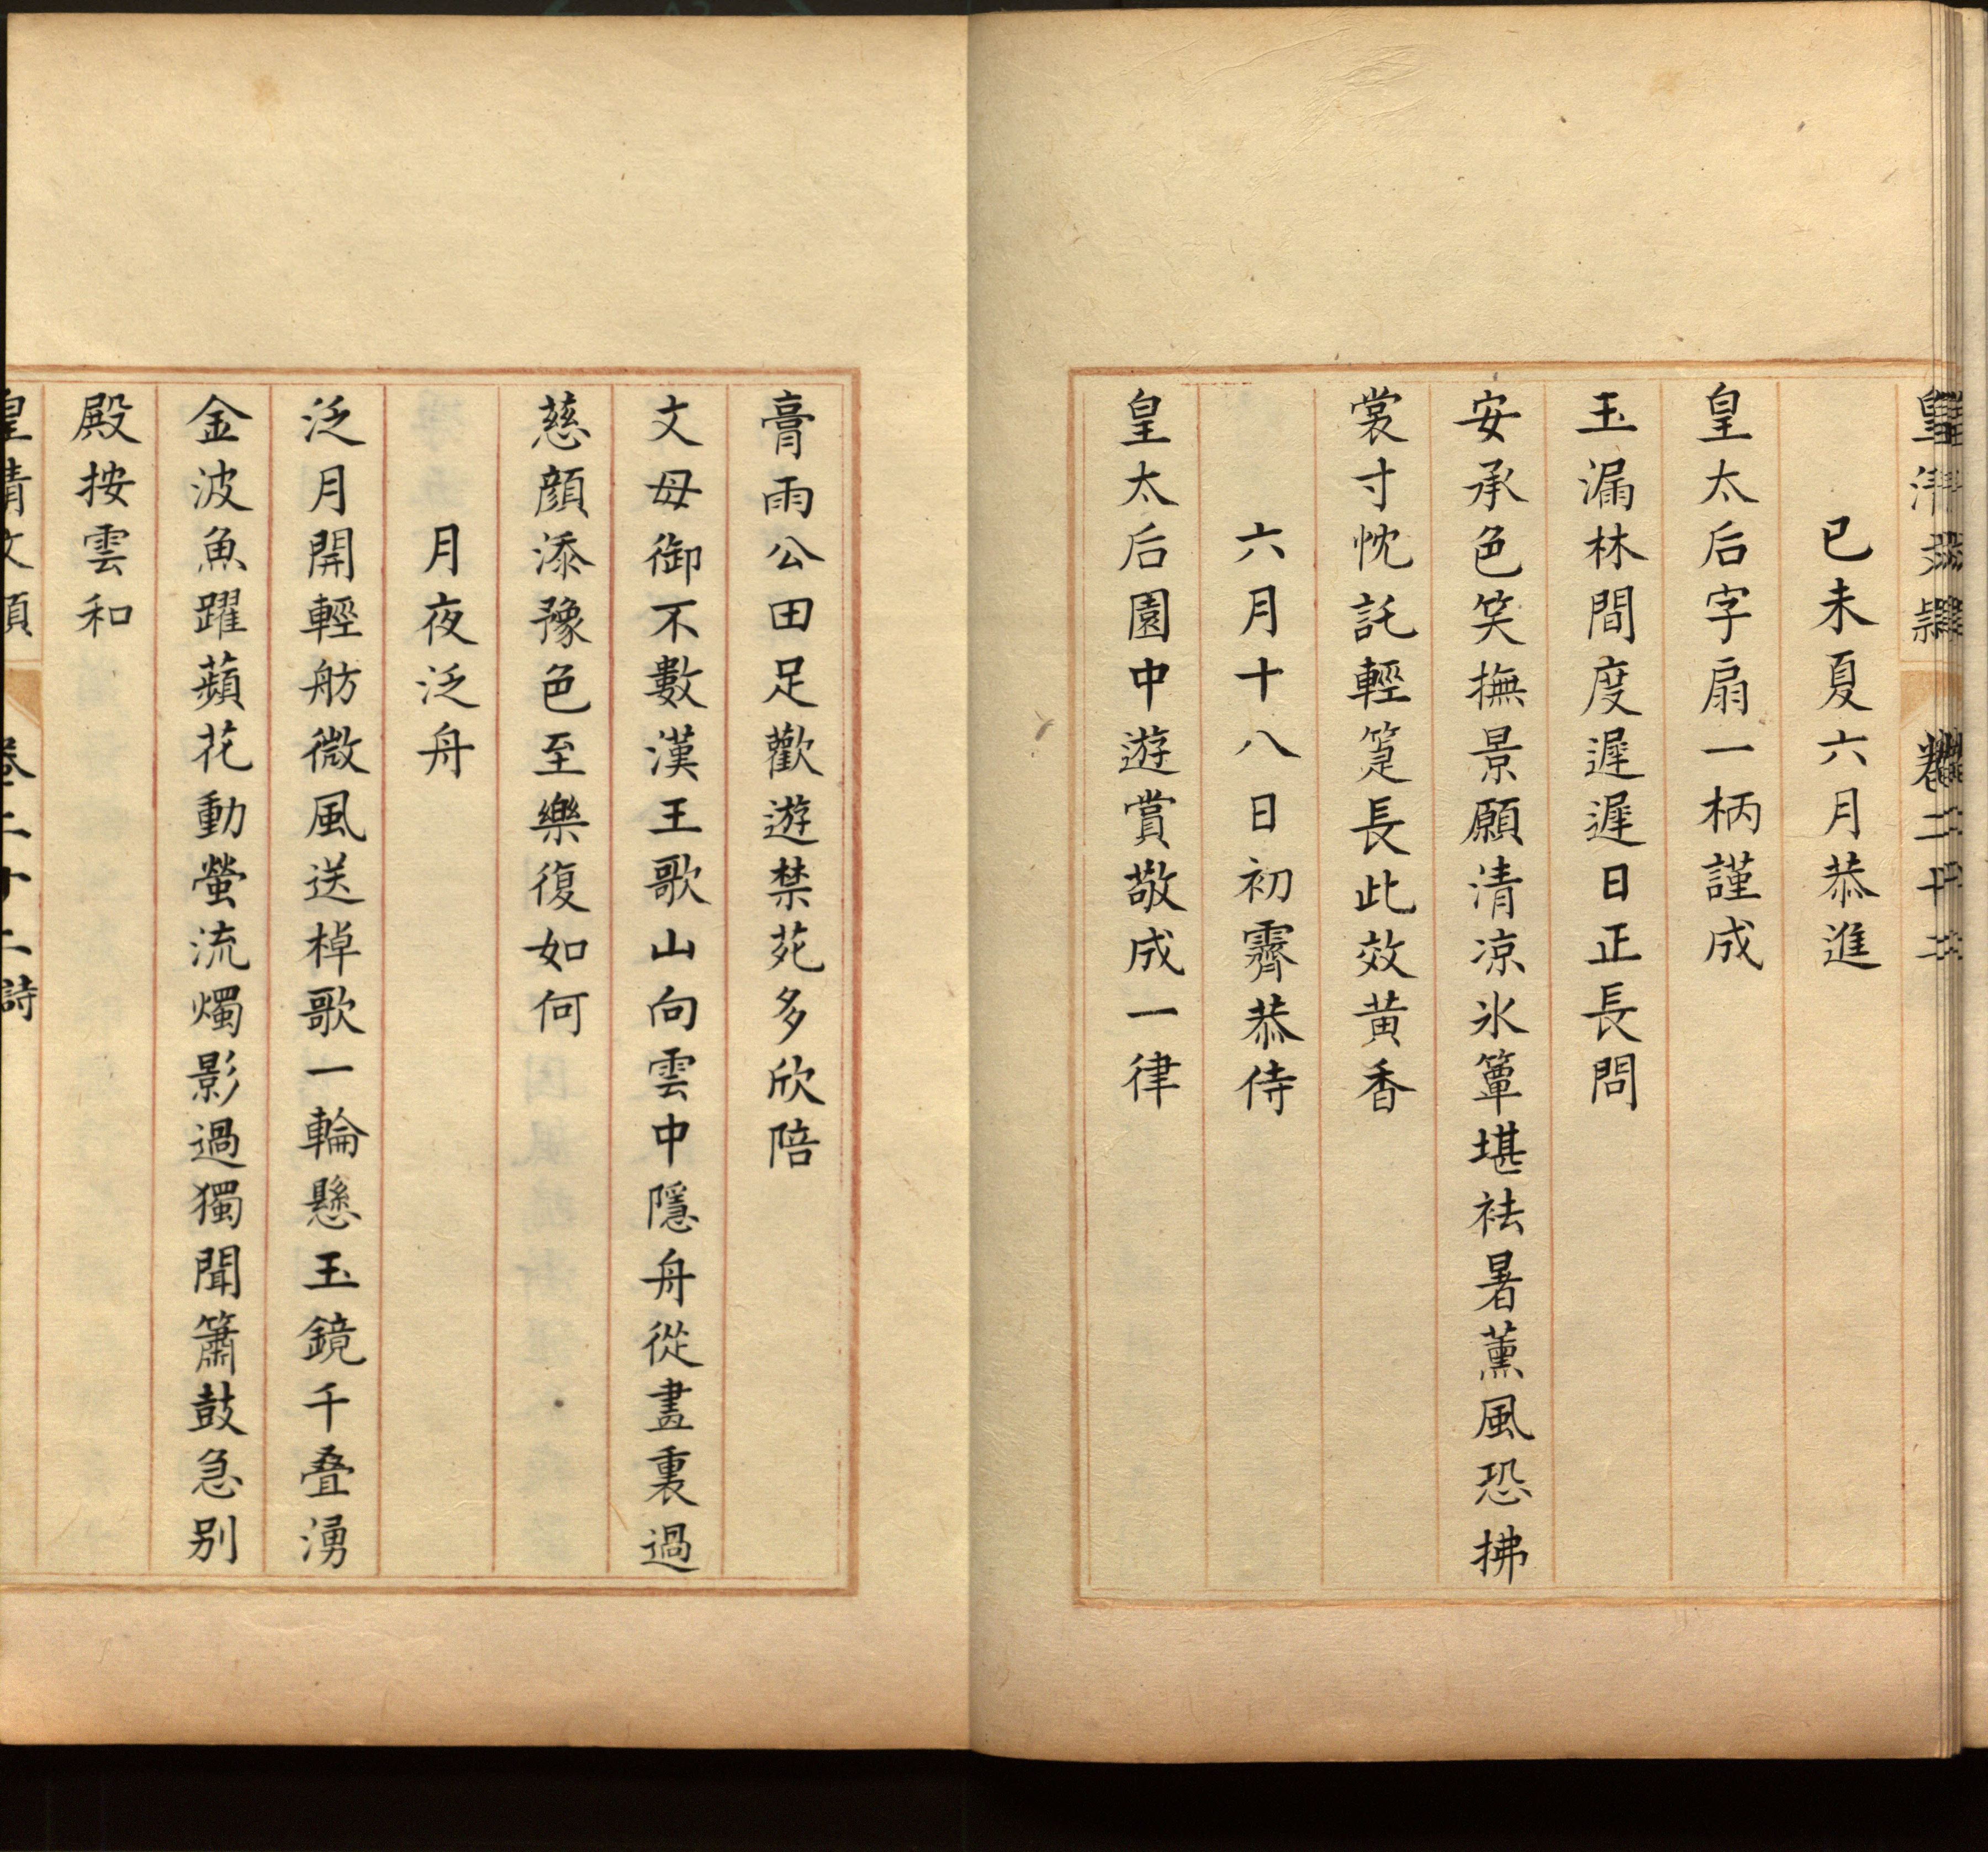 皇清文穎　卷二十二
己未夏六月恭進
皇太后字扇一柄謹成
玉漏林間度遲遲日正長問
安承色笑撫景願清凉氷簟堪祛暑薰風恐拂
裳寸忱託輕箑長此效黄香
六月十八日初霽恭侍
皇太后園中遊賞敬成一律
膏雨公田足歡遊禁苑多欣陪
文母御不數漢王歌山向雲中隱舟從畫裏過
慈顔添豫色至樂復如何
月夜泛舟
泛月開輕舫微風送棹歌一輪懸玉鏡千叠湧
金波魚躍蘋花動螢流燭影過獨聞簫鼓急别
殿按雲和
皇清文穎　卷二十二詩